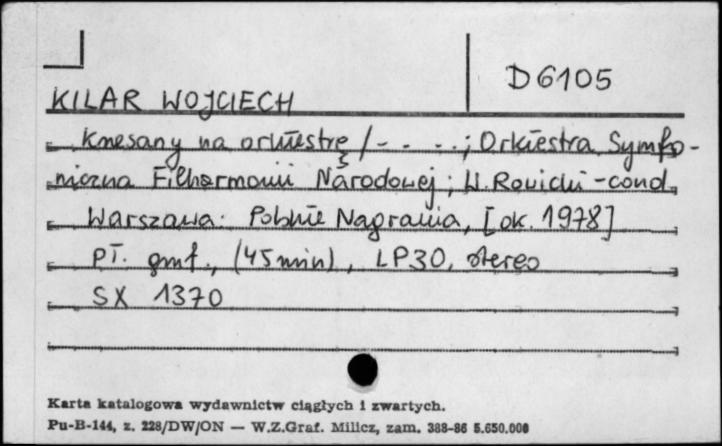 D 6105
KILAR WOJCIECH
Krzesany na orkiestrę / - . - . ; Orkiestra Symfo-
niczna Filharmonii Narodowej ; W. Rowicki - cond.
Warszawa: Polskie Nagrania, [ok. 1978]
pł. gmf., (45 min), LP30, stereo
SX 1370
Karta katalogowa wydawnictw ciągłych i zwartych.
Pu-B-144, z. 228/DW/ON — W.Z.Graf. Milicz, zam. 388-86 5.650.000